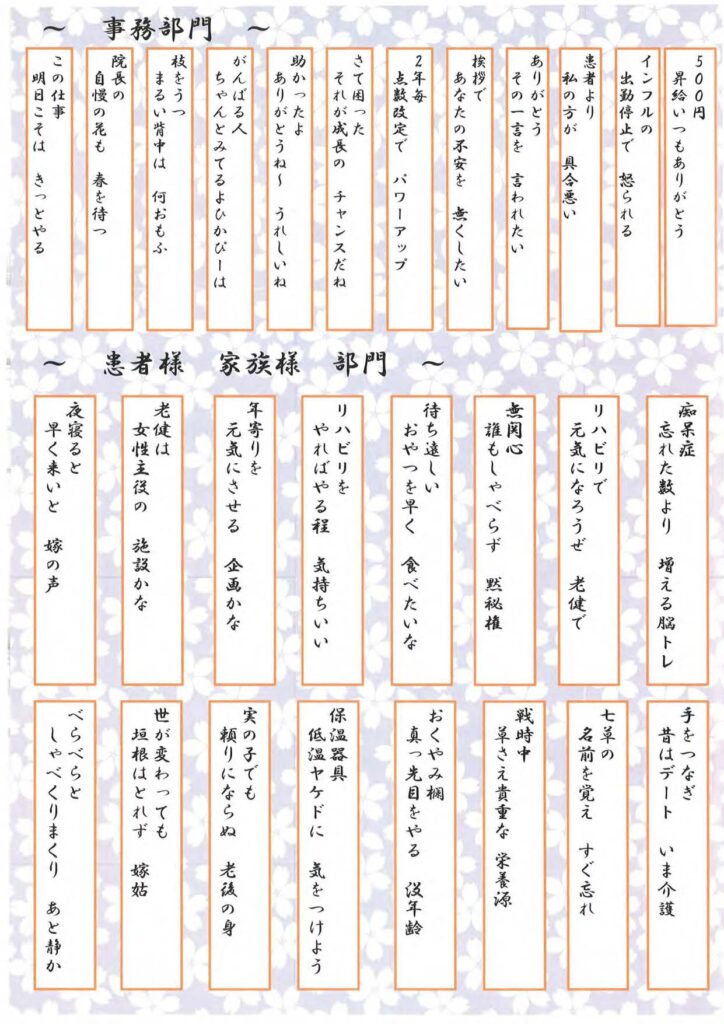 ～　事務部門　～
500円
昇給いつもありがとう
インフルの
出勤停止で　怒られる
患者より
私の方が　具合悪い
ありがとう
その一言を　言われたい
挨拶で
あなたの不安を　無くしたい
2年毎
点数改定で　パワーアップ
さて困った
それが成長の　チャンスだね
助かったよ
ありがとうね～　うれしいね
がんばる人
ちゃんとみてるよひかぴーは
枝をうつ
まるい背中は　何おもふ
院長の
自慢の花も　春を待つ
この仕事
明日こそは　きっとやる
～　患者様　家族様　部門　～
痴呆症
忘れた数より　増える脳トレ
リハビリで
元気になろうぜ　老健で
無関心
誰もしゃべらず　黙秘権
待ち遠しい
おやつを早く　食べたいな
リハビリを
やればやる程　気持ちいい
年寄りを
元気にさせる　企画かな
老健は
女性主役の　施設かな
夜寝ると
早く来いと　嫁の声
手をつなぎ
昔はデート　いま介護
七草の
名前を覚え　すぐ忘れ
戦時中
草さえ貴重な　栄養源
おくやみ欄
真っ先目をやる　没年齢
保温器具
低温ヤケドに　気をつけよう
実の子でも
頼りにならぬ　老後の身
世が変わっても
垣根はとれず　嫁姑
べらべらと
しゃべくりまくり　あと静か